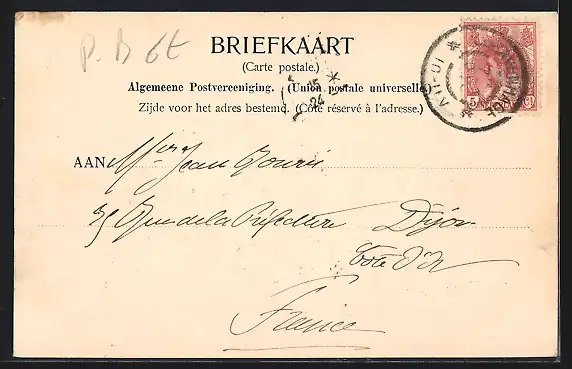 P.B 6t
BRIEFKAART
(Carte postale.)
Algemeene Postvereeniging. (Union postale universelle)
Zijde voor het adres bestemd. (Côté réservé à l'adresse.)
15
24
5
AAN Jean
Rue de la Préfecture Dijon
Côte d'Or
France